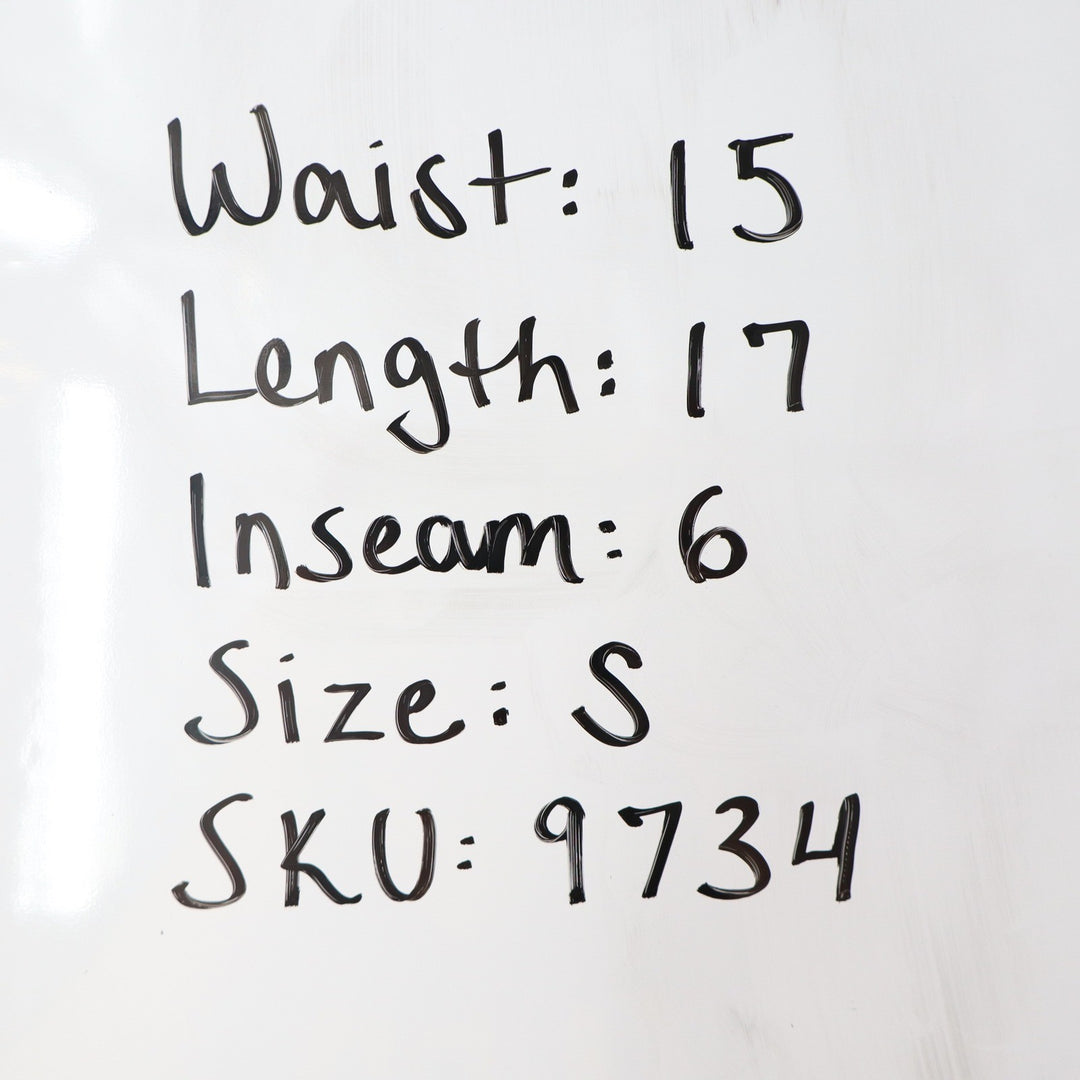 Waist: 15
Length: 17
Inseam: 6
Size: S
SKU: 9734